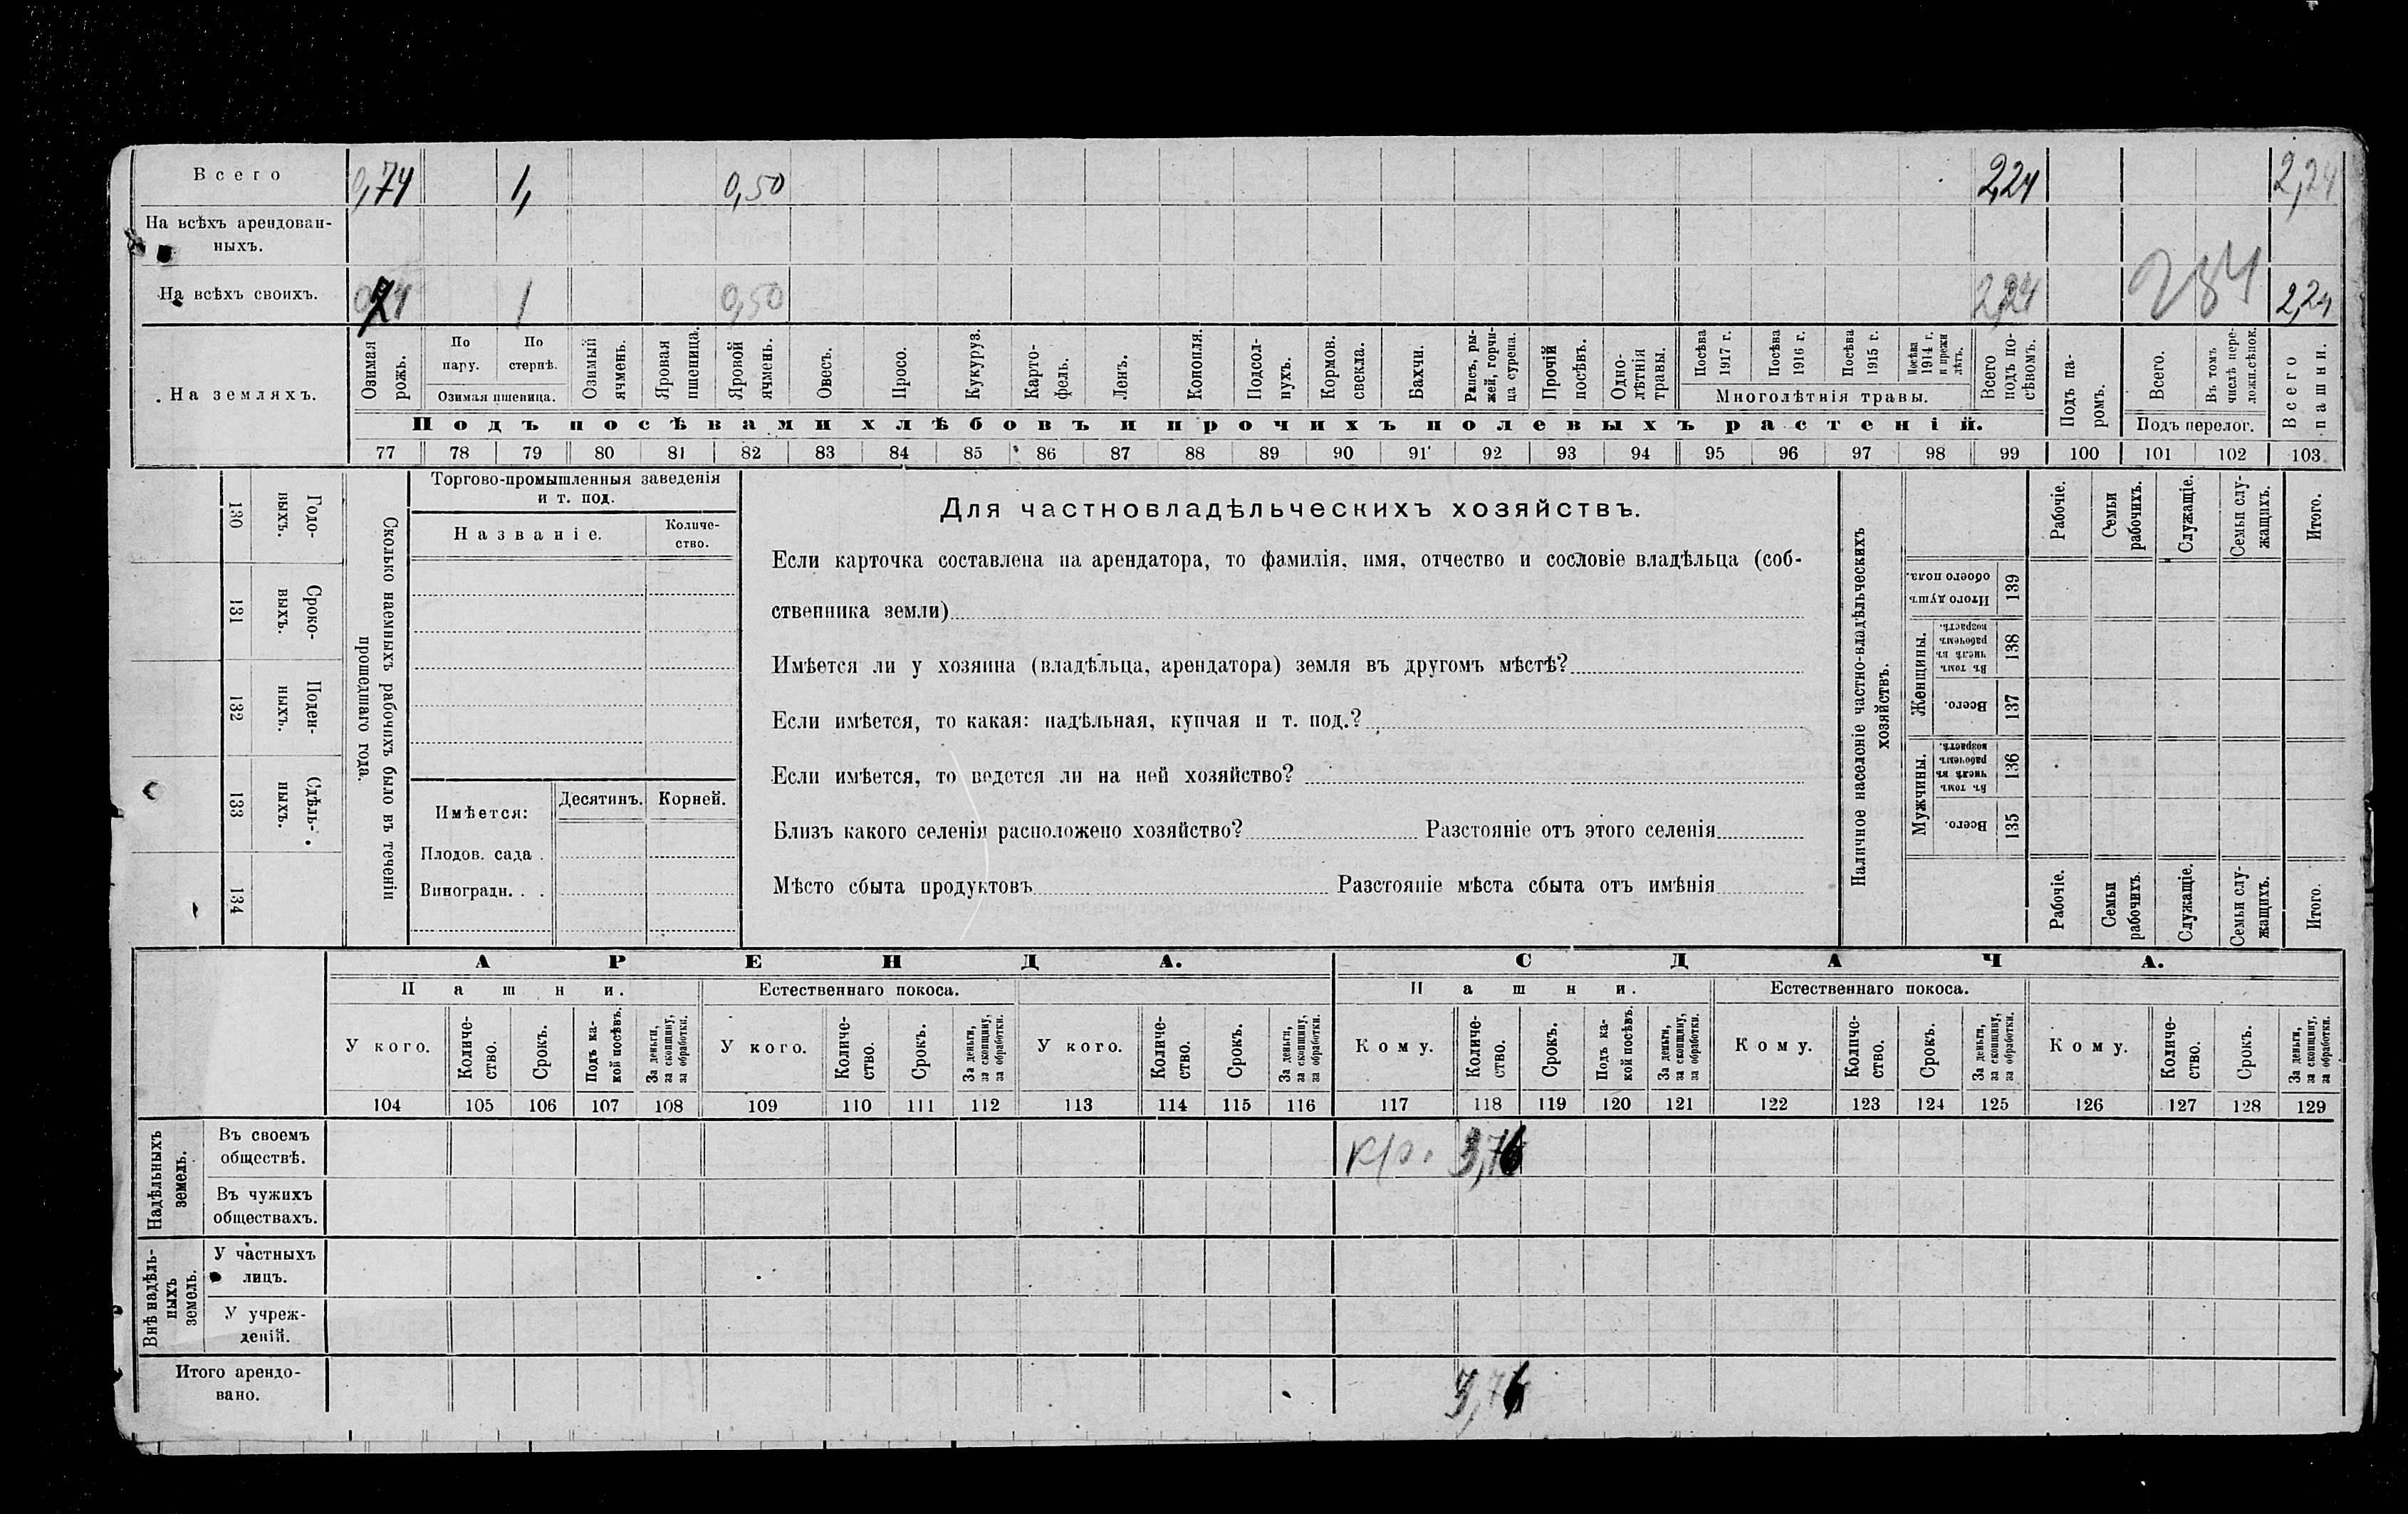 Всего 0,74 1, 0,50 2,24 2,24
На всѣхъ арендован-
ныхъ.
На всѣхъ своихъ. 1 0,50 2,24 2,24
На земляхъ.
Озимая рожь.
По пару.
По стернѣ.
Озимая пшеница.
Озимый ячмень.
Яровая пшеница.
Яровой ячмень.
Овесъ.
Просо.
Кукуруз.
Карто-
фель.
Ленъ.
Конопля.
Подсол-
нухъ.
Кормов. свекла.
Бахчи.
Рапсъ, ры-
жей, горчи-
ца сурепа.
Прочій посѣвъ.
Одно-
лѣтнія травы.
Посѣва 1917 г.
Посѣва 1916 г.
Посѣва 1915 г.
Посѣва 1914 г. и прежн лѣтъ.
Многолѣтнія травы.
Всего подъ по-
сѣвомъ.
Подъ посѣвами хлѣбовъ и прочихъ полевыхъ растеній.
Подъ па-
ромъ.
Всего.
Въ томъ числѣ пере-
ложн.сѣнок.
Подъ перелог.
Всего пашни.
77 78 79 80 81 82 83 84 85 86 87 88 89 90 91 92 93 94 95 96 97 98 99 100 101 102 103
130 Годо-
выхъ.
131 Сроко-
выхъ.
132 Поден-
ныхъ.
133 Сдѣль-
ныхъ.
134
Сколько наемныхъ рабочихъ было въ теченіи
прошедшаго года.
Торгово-промышленныя заведенія
и т. под.
Названіе.
Количе-
ство.
Имѣется: Десятинъ. Корней.
Плодов. сада .
Виноградн. . .
Для частновладѣльческихъ хозяйствъ.
Если карточка составлена на арендатора, то фамилія, имя, отчество и сословіе владѣльца (соб-
ственника земли)
Имѣется ли у хозяина (владѣльца, арендатора) земля въ другомъ мѣстѣ?
Если имѣется, то какая: надѣльная, купчая и т. под.?
Если имѣется, то ведется ли на ней хозяйство?
Близъ какого селенія расположено хозяйство? Разстояніе отъ этого селенія
Мѣсто сбыта продуктовъ Разстояніе мѣста сбыта отъ имѣнія
Наличное населеніе частно-владѣльческихъ
хозяйствъ.
Рабочіе.
Семьи рабочихъ.
Служащіе.
Семьи слу-
жащихъ.
Итого.
Итого душъ обоего пола. 139
Женщины.
Въ томъ числѣ въ рабочемъ возрастѣ. 138
Всего. 137
Мужчины.
Въ томъ числѣ въ рабочемъ возрастѣ. 136
Всего. 135
Рабочіе.
Семьи рабочихъ.
Служащіе.
Семьи слу-
жащихъ.
Итого.
АРЕНДА. СДАЧА.
Пашни. Естественнаго покоса. Пашни. Естественнаго покоса.
У кого.
Количе-
ство.
Срокъ.
Подъ ка-
кой посѣвъ.
За деньги,
за скопщину,
за обработки.
У кого.
Количе-
ство.
Срокъ.
За деньги,
за скопщину,
за обработки.
У кого.
Количе-
ство.
Срокъ.
За деньги,
за скопщину,
за обработки.
Кому.
Количе-
ство.
Срокъ.
Подъ ка-
кой посѣвъ.
За деньги,
за скопщину,
за обработки.
Кому.
Количе-
ство.
Срокъ.
За деньги,
за скопщину,
за обработки.
Кому.
Количе-
ство.
Срокъ.
За деньги,
за скопщину,
за обработки.
104 105 106 107 108 109 110 111 112 113 114 115 116 117 118 119 120 121 122 123 124 125 126 127 128 129
Надѣльныхъ
земель.
Въ своемъ
обществѣ. кр. 3,76
Въ чужихъ
обществахъ.
Внѣ надѣль-
ныхъ
земель.
У частныхъ
лицъ.
У учреж-
деній.
Итого арендо-
вано. 3,76